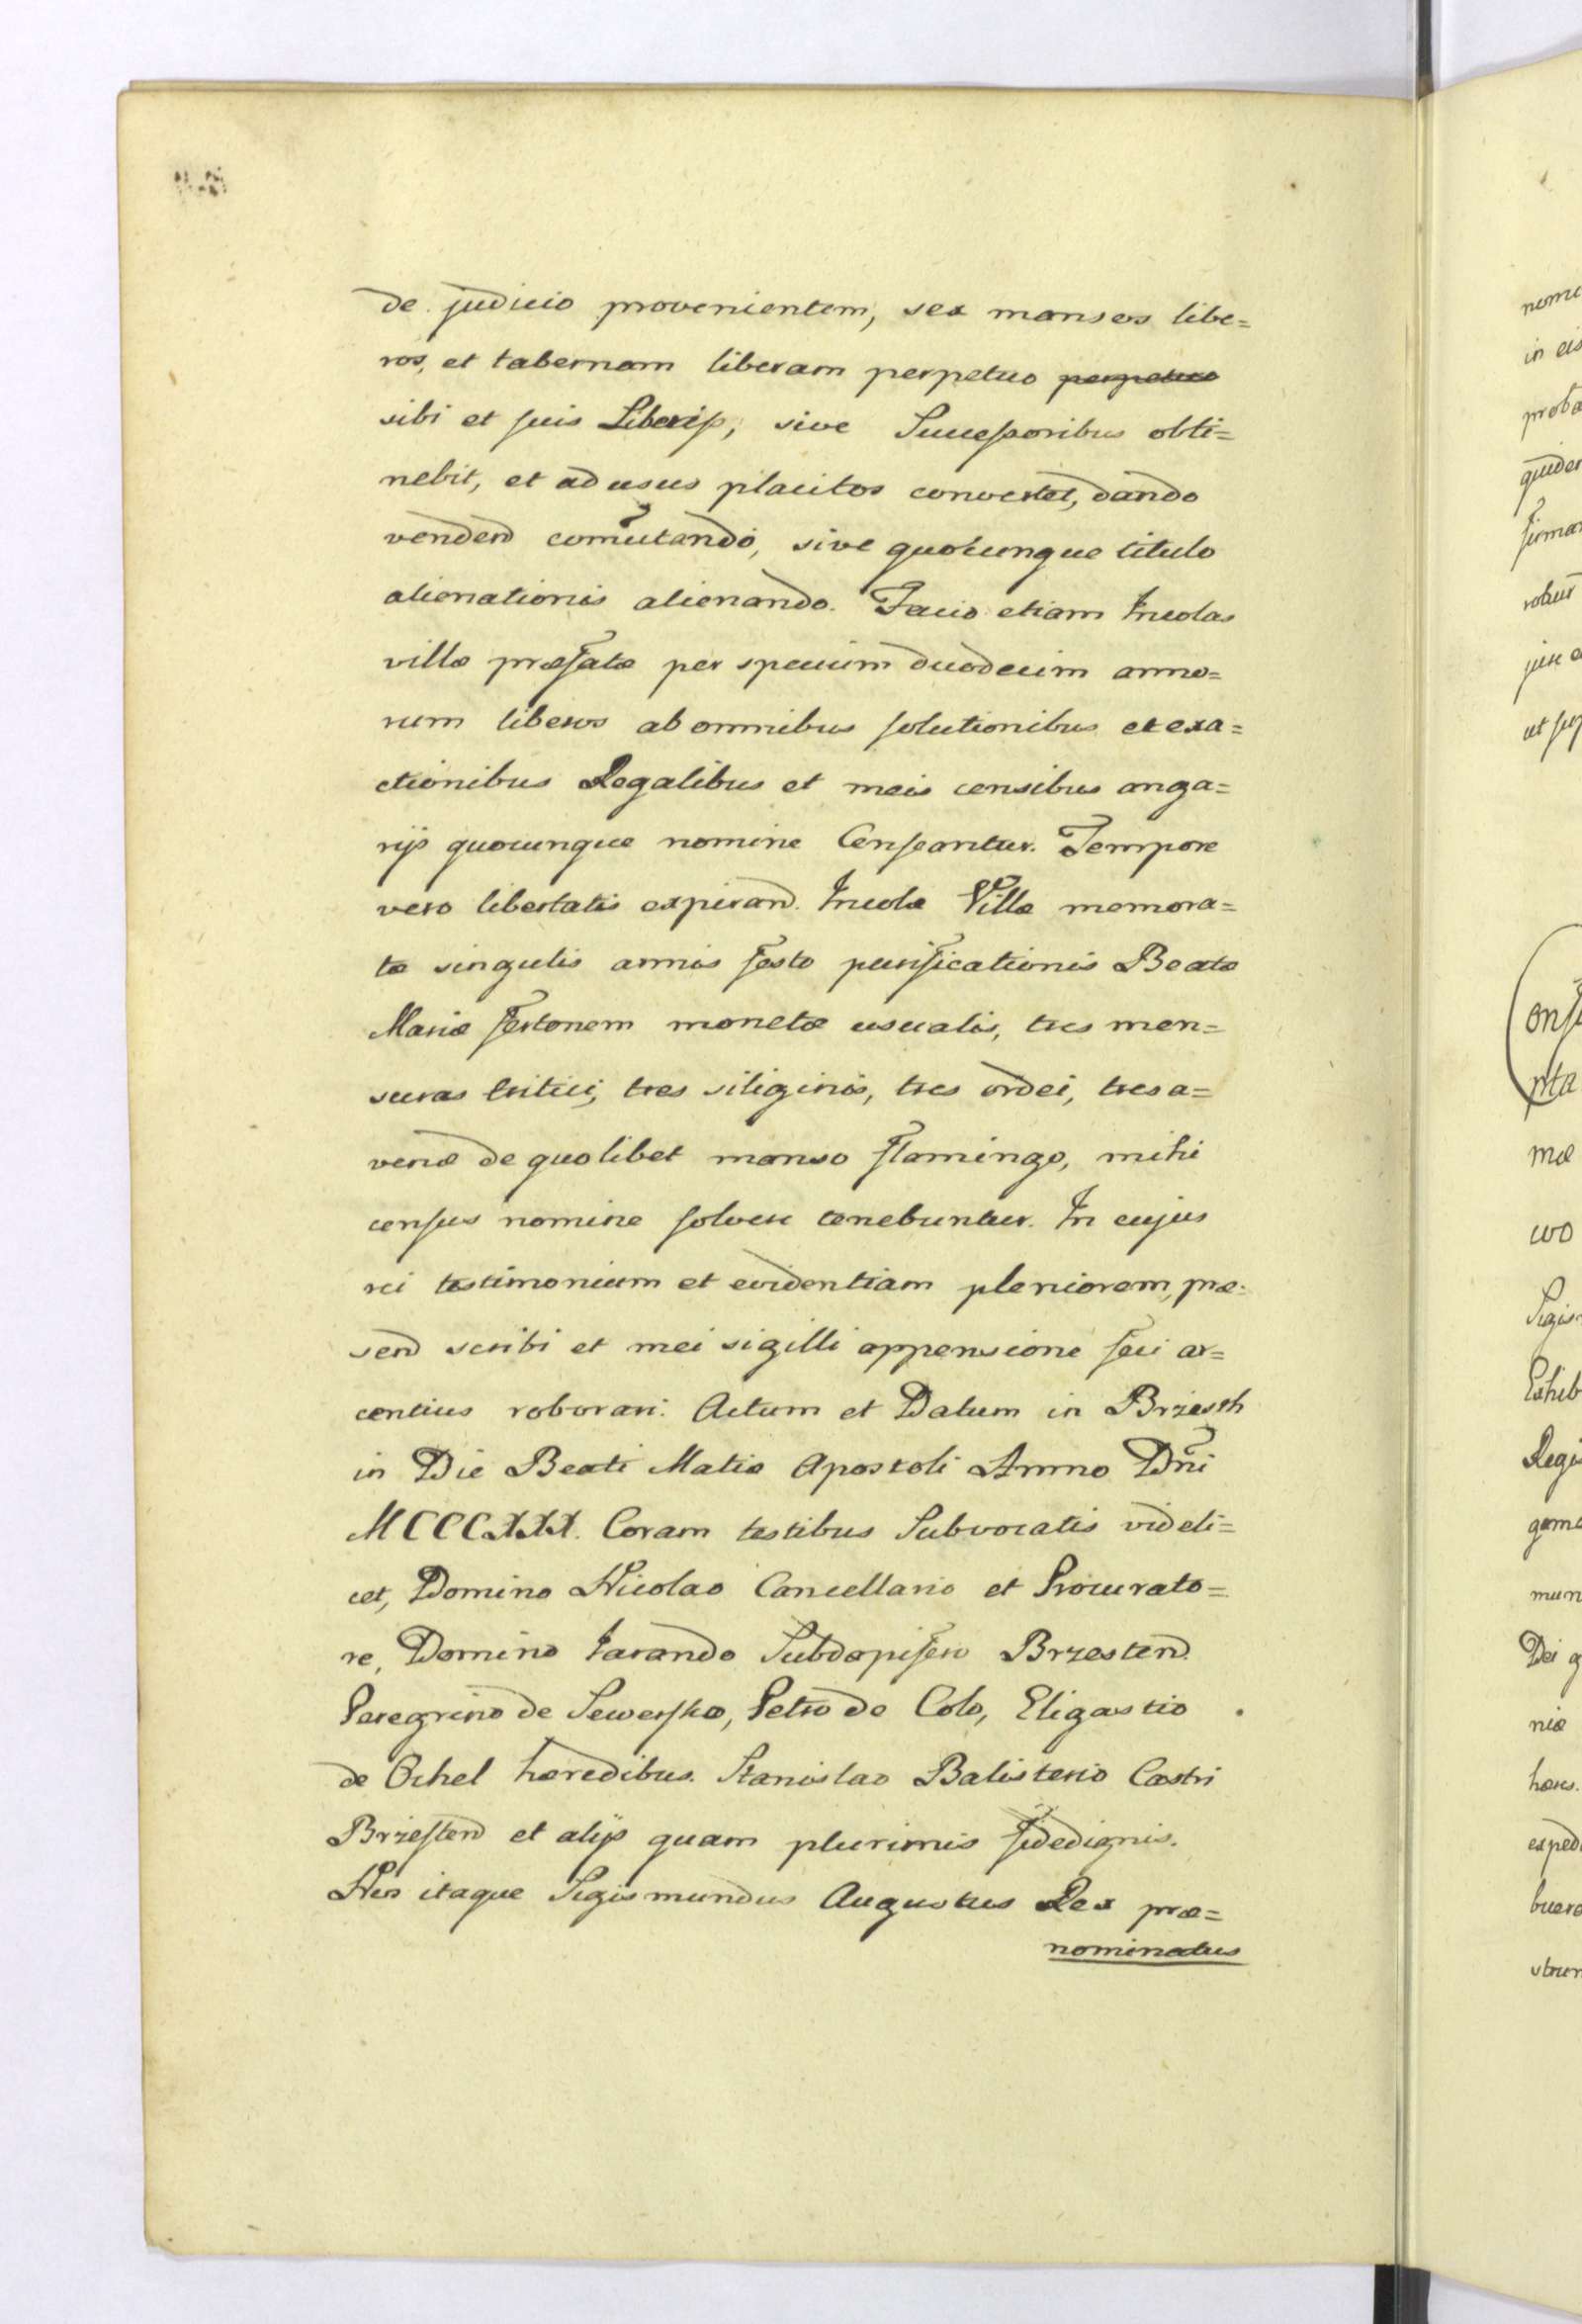 de judicio provenientem, sex mansos libe=
ros, et tabernam liberam perpetuo perpetuo
sibi et suis Liberis, sive Successoribus obti=
nebit, et ad usus placitos convertet, dando
vendend comutando, sive quocunque titulo
alienationis alienando. Facio etiam Incolas
villæ præfatæ per spacium duodecim anno=
rum liberos ab omnibus solutionibus et exa=
ctionibus Regalibus et meis censibus anga=
rijs quocunque nomine Censeantur. Tempore
vero libertatis expirand. Incolæ Villæ memora=
tæ singulis annis festo purificationis Beatæ
Mariæ fertonem monetæ usualis, tres men=
suras tritici, tres siliginis, tres ordei, tres a=
venæ de quolibet manso flamingo, mihi
census nomine solvere tenebuntur. In cujus
rei testimonium et evidentiam pleniorem, præ=
send scribi et mei sigilli appensione feci ar=
centius roborari. Actum et Datum in Brzesth
in Die Beati Matiæ Apostoli Anno Dni
MCCCXXX. Coram testibus Subvocatis videli=
cet, Domino Nicolao Cancellario et Procurato=
re, Domino Iarando Subdapifero Brzestend.
Peregrino de Sewersko, Petro de Colo, Eligastio
de Ochel hæredibus. Stanislao Balisterio Castri
Brzestend et alijs quam plurimis fidedignis.
Nos itaque Sigismundus Augustus Rex præ=
nominatus